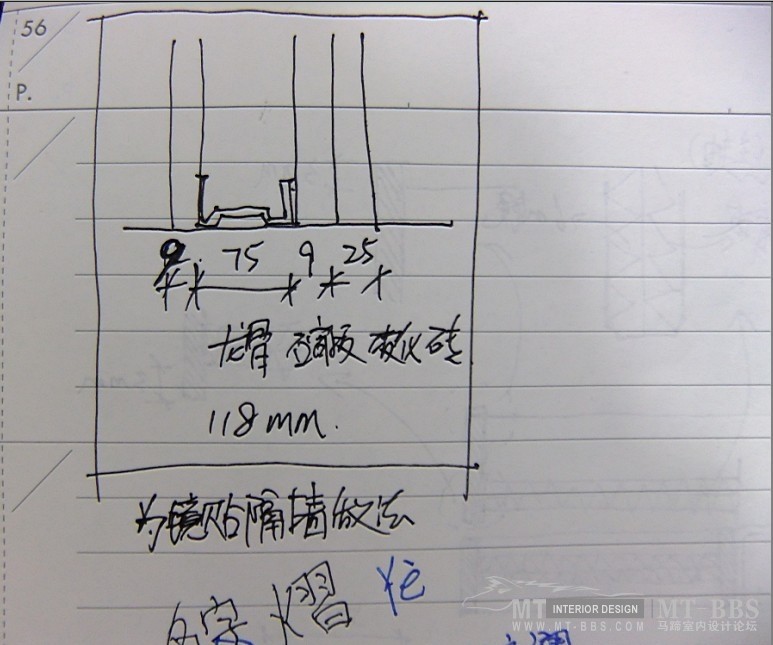 56
P.
9 75 9 25
龙骨 石膏板 玻化砖
118mm.
为镜贴隔墙做法
熠
MT INTERIOR DESIGN MT-BBS
WWW.MT-BBS.COM 马蹄室内设计论坛